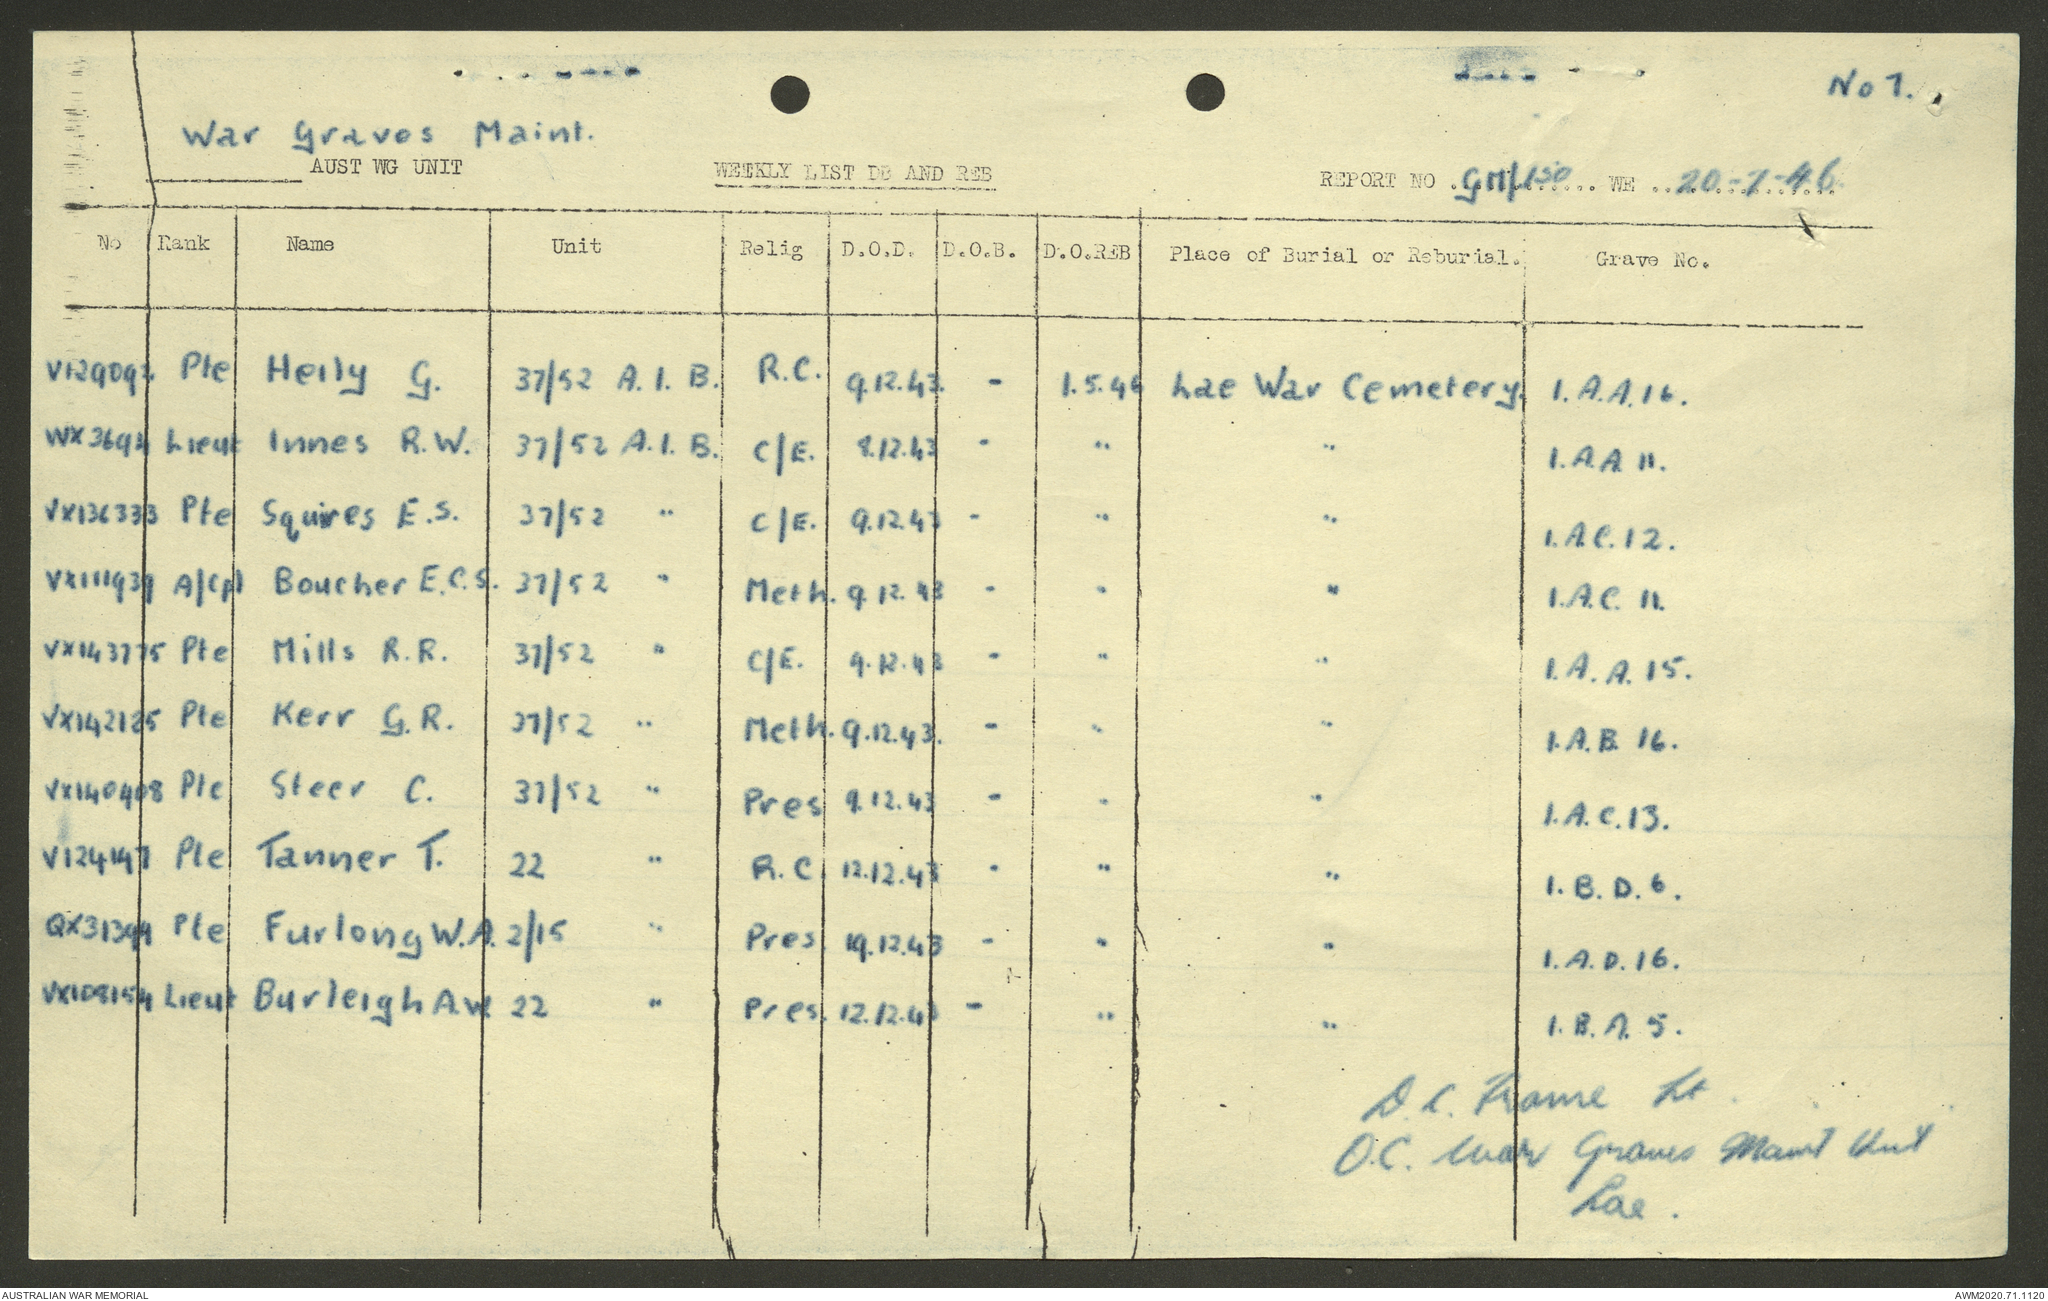 No 1.
War Graves Maint.
AUST WG UNIT WEEKLY LIST DB AND REB REPORT NO .GM/150 WE 20-7-46.
No Rank Name Unit Relig D.O.D. D.O.B. D.O.REB Place of Burial or Reburial. Grave No.
V129092 Pte Heily G. 37/52 A.I.B. R.C. 9.12.43. - 1.5.46 Lae War Cemetery. 1.A.A.16.
WX3694 Lieut Innes R.W. 37/52 A.I.B. C/E. 8.12.43 - " " 1.A.A 11.
VX136333 Pte Squires E.S. 37/52 " C/E. 9.12.43 - " " 1.A.C.12.
VX111939 A/Cpl Boucher E.C.S. 37/52 " Meth. 9.12.43 - " " 1.A.C. 11.
VX143775 Pte Mills R.R. 37/52 " C/E. 9.12.43 - " " 1.A.A.15.
VX142125 Pte Kerr G.R. 37/52 " Meth. 9.12.43. - " " 1.A.B. 16.
VX140408 Pte Steer C. 37/52 " Pres 9.12.43 - " " 1.A.C.13.
V124147 Pte Tanner T. 22 " R.C 12.12.43 - " " 1.B.D.6.
QX31394 Pte Furlong W.A. 2/15 " Pres. 19.12.43 - " " 1.A.D.16.
VX108154 Lieut Burleigh A.W. 22 " Pres. 12.12.43 - " " 1.B.A.5.
D.C. Frame Lt.
O.C. War Graves Maint Unit
Lae.
AUSTRALIAN WAR MEMORIAL AWM2020.71.1120